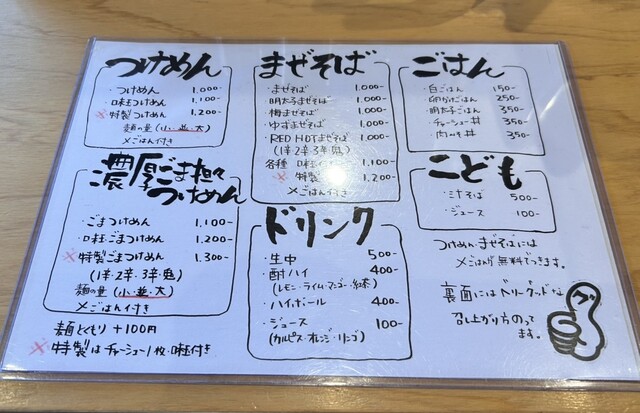 つけめん
・つけめん 1,000-
・味玉つけめん 1,100-
※特製つけめん 1,200-
麺の量(小・並・大)
〆ごはん付き
濃厚ごま担々つけめん
・ごまつけめん 1,100-
・味玉ごまつけめん 1,200-
※特製ごまつけめん 1,300-
(1辛・2辛・3辛・鬼)
麺の量(小・並・大)
〆ごはん付き
麺大もり +100円
※特製はチャーシュー1枚・味玉付き
まぜそば
・まぜそば 1,000-
・明太子まぜそば 1,000-
・梅まぜそば 1,000-
・ゆずまぜそば 1,000-
・RED HOTまぜそば 1,000-
(1辛2辛3辛(鬼)
各種 味玉 1,100-
※特製 1,200-
〆ごはん付き
ドリンク
・生中 500-
・酎ハイ 400-
(レモン・ライム・マンゴー・紅茶)
・ハイボール 400-
・ジュース 100-
(カルピス・オレンジ・リンゴ)
ごはん
・白ごはん 150-
・卵かけごはん 250-
・明太子ごはん 350-
・チャーシュー丼 350-
・肉みそ丼 350-
こども
・ミナそば 500-
・ジュース 100-
つけめん・まぜそばには
〆ごはんが無料でつきます。
裏面にはベリーグッドな
召し上がり方のってます。
グー